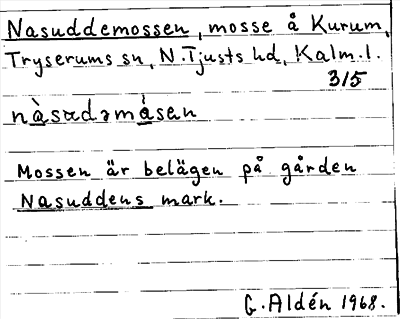 Nasuddemossen, mosse å Kurum,
Tryserums sn, N. Tjusts hd, Kalm. l.
315
nàsɑdəmåsɛn
Mossen är belägen på gården
Nasuddens mark.
G. Aldén 1968.